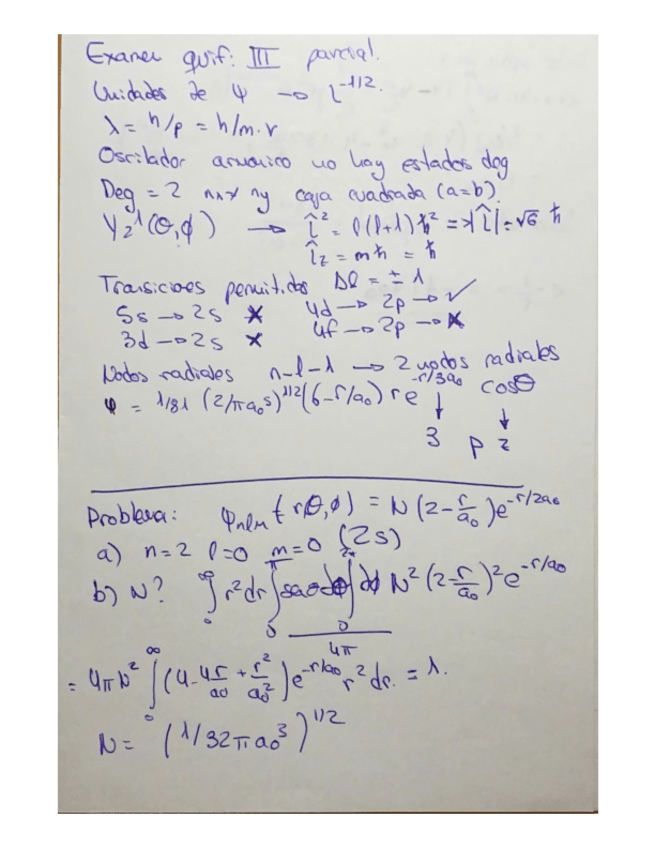 Examen quif: III parcial.
Unidades de ψ → L^-1/2.
λ = h/p = h/m·v
Oscilador armonico no hay estados deg
Deg = 2 nx≠ ny caja cuadrada (a=b).
Y₂¹(θ,φ) → l̂² = l(l+1)ħ² => |l̂| = √6 ħ
l̂z = mħ = ħ
Transiciones permitidas Δl = ± 1
5s → 2s ✗ 4d → 2p → ✓
3d → 2s ✗ 4f → 2p → ✗
Nodos radiales n-l-1 → 2 nodos radiales
φ = 1/81 (2/πa₀⁵)^1/2 (6-r/a₀) r e^-r/3a₀ cosθ
↓ ↓
3 p z
Problema: φnlm (r,θ,φ) = N (2-r/a₀) e^-r/2a₀
a) n=2 l=0 m=0 (2s)
b) N? ∫₀^∞ r²dr ∫₀^π senθdθ ∫₀^2π dφ N² (2-r/a₀)² e^-r/a₀
4π
= 4πN² ∫₀^∞ (4-4r/a₀ + r²/a₀²) e^-r/a₀ r² dr. = 1.
N = (1/32πa₀³)^1/2